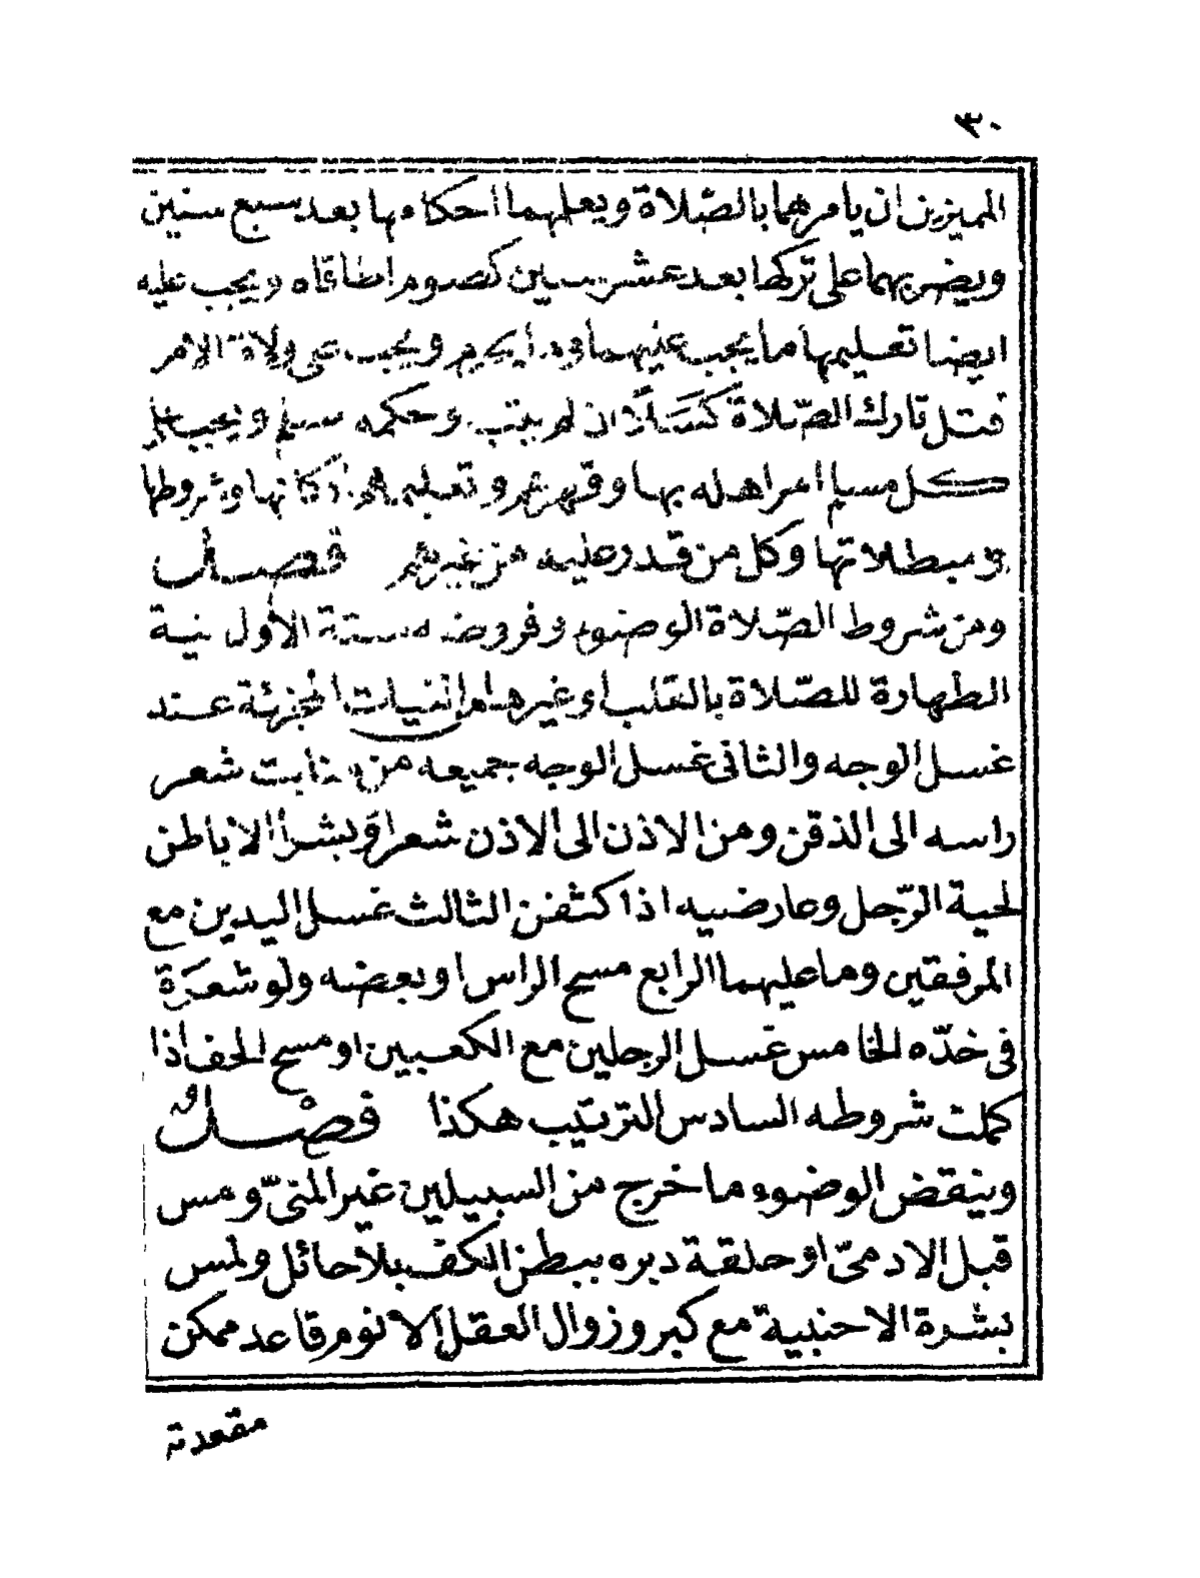 ٣٠
المميزين ان يامرهما بالصّلاة ويعلمهما احكامها بعد سبع سنين
ويضربهما على تركها بعد عشر سنين كصوم اطاقاه ويجب عليه
ايضا تعليمهما ما يجب عليهما وما يحرم ويجب على ولاة الامر
قتل تارك الصّلاة كَسَلًا ان لم يتب وحكمه مسلم ويجب على
كل مسلم امر اهله بها وقهرهم وتعليمهم اركانها وشروطها
ومبطلاتها وكل من قدر عليه من غيرهم فصل
ومن شروط الصّلاة الوضوء وفروضه ستة الأول نية
الطهارة للصّلاة بالقلب او غيرها من النيات المجزئة عند
غسل الوجه والثاني غسل الوجه جميعه من منابت شعر
راسه الى الذقن ومن الاذن الى الاذن شعرا وبشرا لا باطن
لحية الرّجل وعارضيه اذا كثفن الثالث غسل اليدين مع
المرفقين وما عليهما الرابع مسح الراس او بعضه ولو شعَرَة
في حدّه الخامس غسل الرجلين مع الكعبين او مسح الخف اذا
كملت شروطه السادس الترتيب هكذا فصْلٌ
وينقض الوضوء ما خرج من السبيلين غير المنيّ ومس
قبل الادميّ او حلقة دبره ببطن الكف بلا حائل ولمس
بشرة الاجنبية مع كبر وزوال العقل الا نوم قاعد ممكن
مقعدته